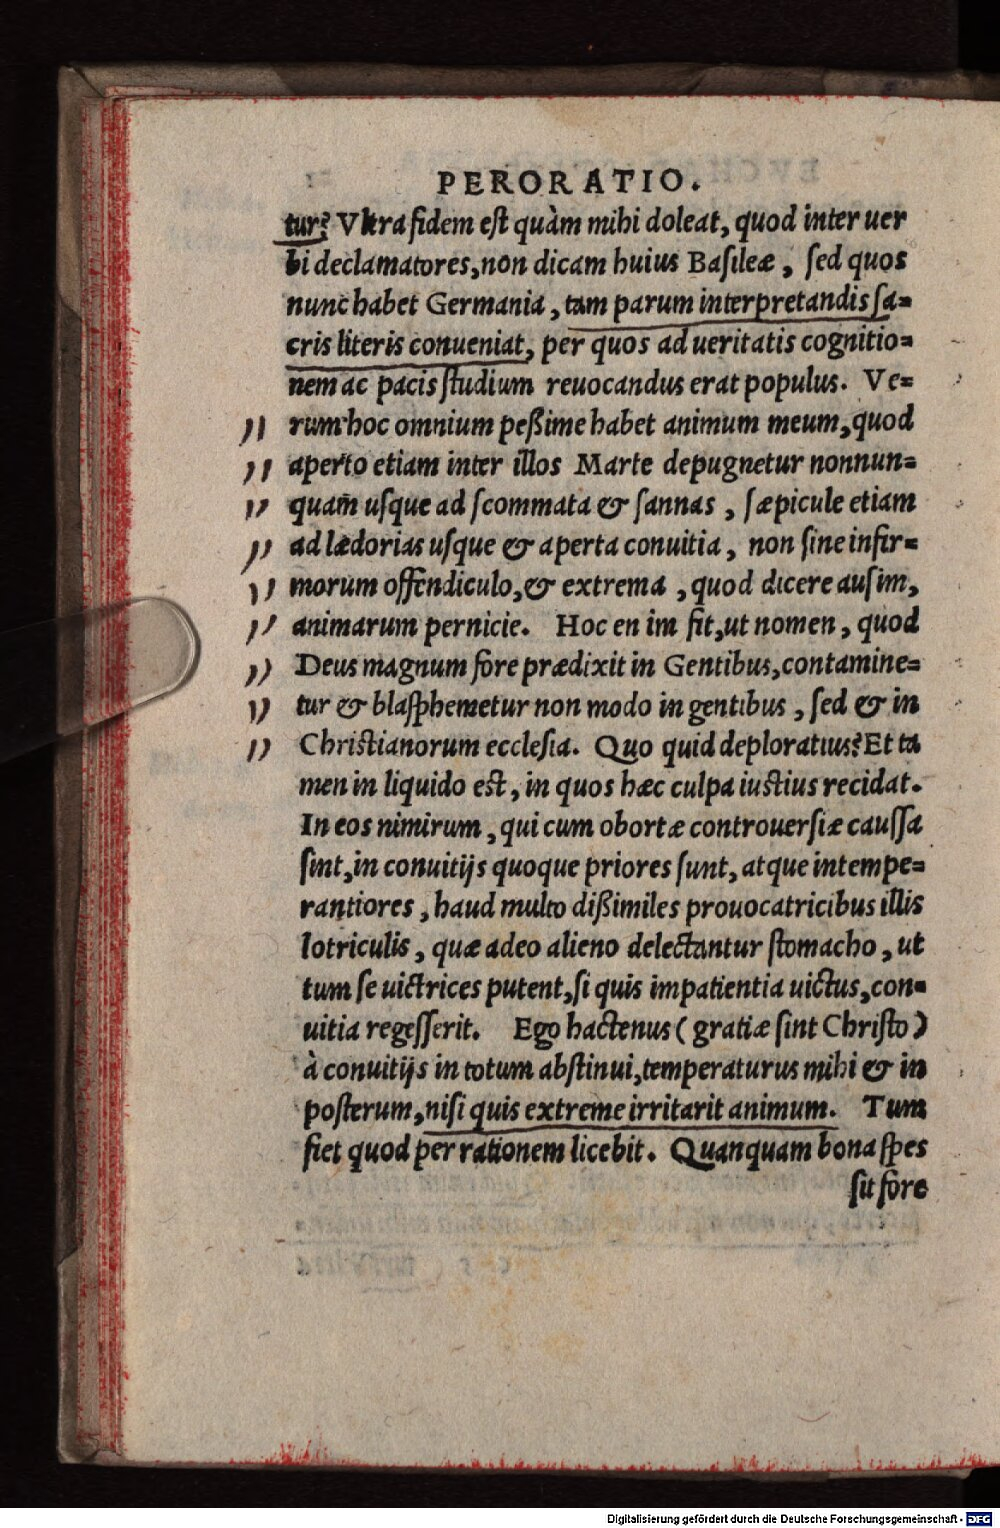 PERORATIO.
tur? Vltra fidem est quàm mihi doleat, quod inter uer
bi declamatores, non dicam huius Basileæ, sed quos
nunc habet Germania, tam parum interpretandis sa=
cris literis conueniat, per quos ad ueritatis cognitio=
nem ac pacis studium reuocandus erat populus. Ve=
rum hoc omnium peßime habet animum meum, quod
aperto etiam inter illos Marte depugnetur nonnun=
quam usque ad scommata & sannas, sæpicule etiam
ad lædorias usque & aperta conuitia, non sine infir=
morum offendiculo, & extrema, quod dicere ausim,
animarum pernicie. Hoc enim fit, ut nomen, quod
Deus magnum fore prædixit in Gentibus, contamine=
tur & blasphemetur non modo in gentibus, sed & in
Christianorum ecclesia. Quo quid deploratius? Et ta
men in liquido est, in quos hæc culpa iustius recidat.
In eos nimirum, qui cum obortæ controuersiæ caussa
sint, in conuitijs quoque priores sunt, atque intempe=
rantiores, haud multo dißimiles prouocatricibus illis
lotriculis, quæ adeo alieno delectantur stomacho, ut
tum se uictrices putent, si quis impatientia uictus, con=
uitia regesserit. Ego hactenus (gratiæ sint Christo)
à conuitijs in totum abstinui, temperaturus mihi & in
posterum, nisi quis extreme irritarit animum. Tum
fiet quod per rationem licebit. Quanquam bona spes
sit fore
Digitalisierung gefördert durch die Deutsche Forschungsgemeinschaft - DFG